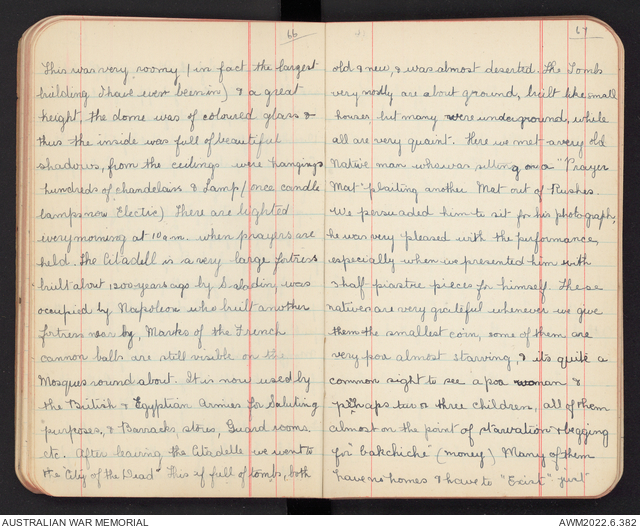 66
This was very roomy (in fact the largest
building I have ever been in) & a great
height, the dome was of coloured glass &
thus the inside was full of beautiful
shadows, from the ceilings were hangings
hundreds of chandelairs & Lamp (once candle
lamps now Electric) There are lighted
every morning at 10 a.m. when prayers are
held. The Citadell is a very large fortress
built about 1200 years ago by Saladin, was
occupied by Napoleon who built another
fortress near by, Marks of the French
cannon balls are still visible on the
Mosques round about. It is now used by
the British & Egyptian Armies for Saluting
purposes, & Barracks, stores, Guard rooms
etc. After leaving the Citadelle we went to
the "City of the Dead" This is full of tombs, both
67
old & new, & was almost deserted. The Tombs
very mostly are about ground, built like small
houses, but many were underground, while
all are very quaint. Here we met a very old
Native man who was sitting on a "Prayer
Mat" plaiting another Mat out of Rushes.
We persuaded him to sit for his photograph,
he was very pleased with the performance,
especially when we presented him with
3 half piastre pieces for himself. These
natives are very grateful whenever we give
them the smallest coin, some of them are
very poa almost starving, & its quite a
common sight to see a poa woman &
perhaps two or three children, all of them
almost on the point of starvation & begging
for "bakchiche" (money) Many of them
have no homes & have to "Exist" just
AUSTRALIAN WAR MEMORIAL
AWM2022.6.382